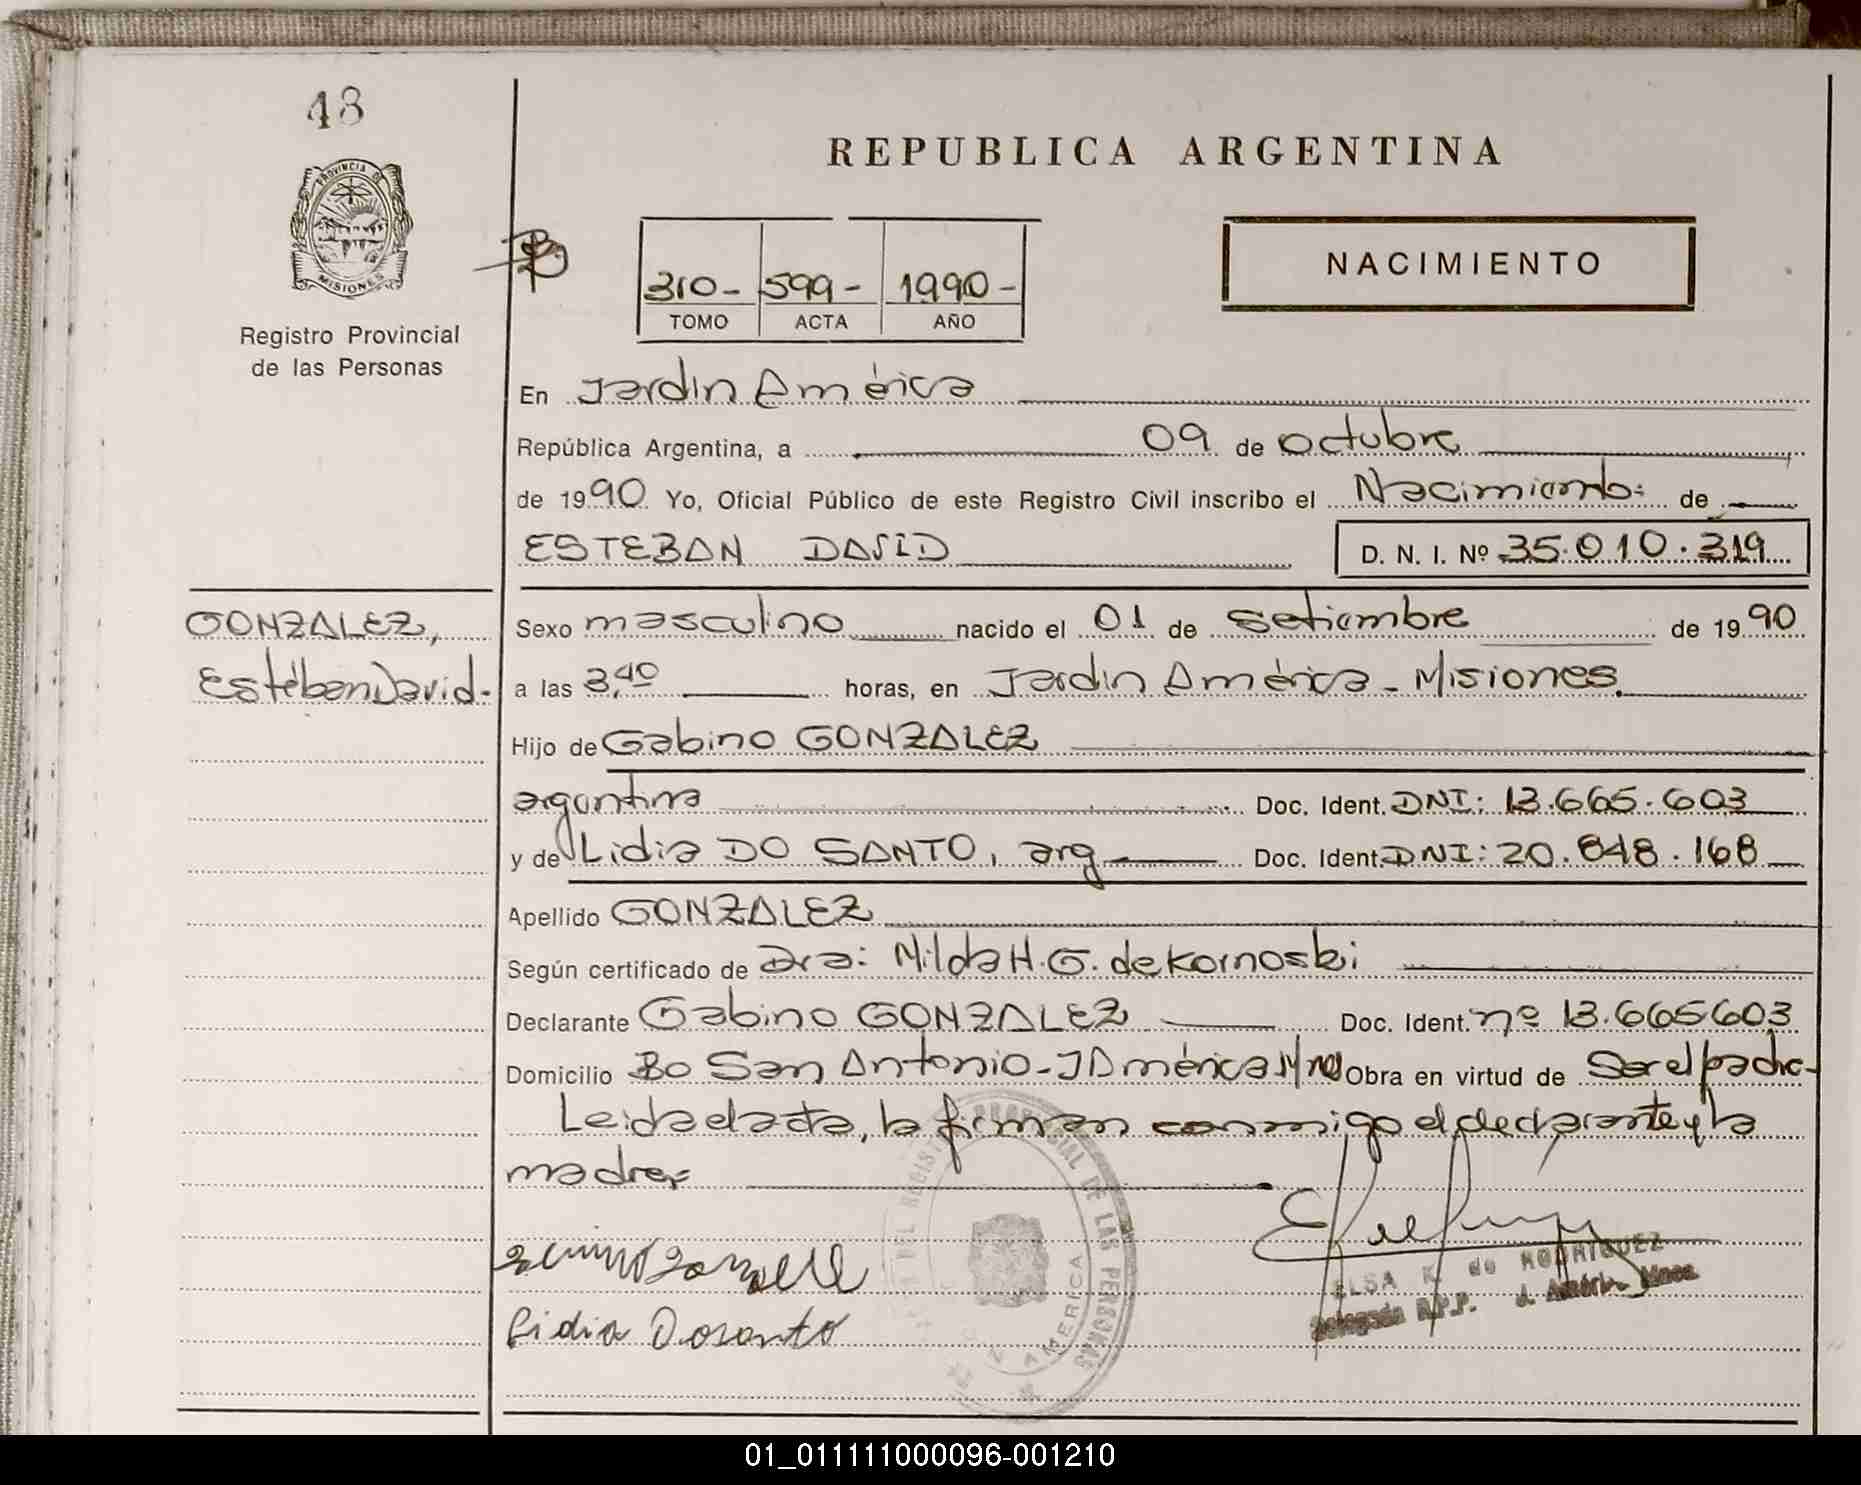 48
REPUBLICA ARGENTINA
PROVINCIA DE
MISIONES
NACIMIENTO
310- 599- 1990-
TOMO ACTA AÑO
Registro Provincial
de las Personas
En Jardin América
República Argentina, a 09 de octubre
de 1990 Yo, Oficial Público de este Registro Civil inscribo el Nacimiento: de
ESTEBAN DAVID D. N. I. Nº 35.010.319
GONZALEZ,
Estéban David.-
Sexo masculino nacido el 01 de setiembre de 1990
a las 3,40 horas, en Jardin América - Misiones.
Hijo de Gabino GONZALEZ
argentina Doc. Ident. DNI: 13.665.603
y de Lidia DO SANTO, arg Doc. Ident. DNI: 20.848.168
Apellido GONZALEZ
Según certificado de Dra: Nilda H. G. de Kornoski
Declarante Gabino GONZALEZ Doc. Ident. nº 13.665603
Domicilio Bo San Antonio - J América Mnes Obra en virtud de Ser el padre-
Leida el acta, la firman conmigo el declarante y la
madre
Lidia Dosanto
ELSA K. de RODRIGUEZ
Delegada R.P.P. J. América Mnes
DEL REGISTRO PROVINCIAL DE LAS PERSONAS
AMERICA
01_011111000096-001210